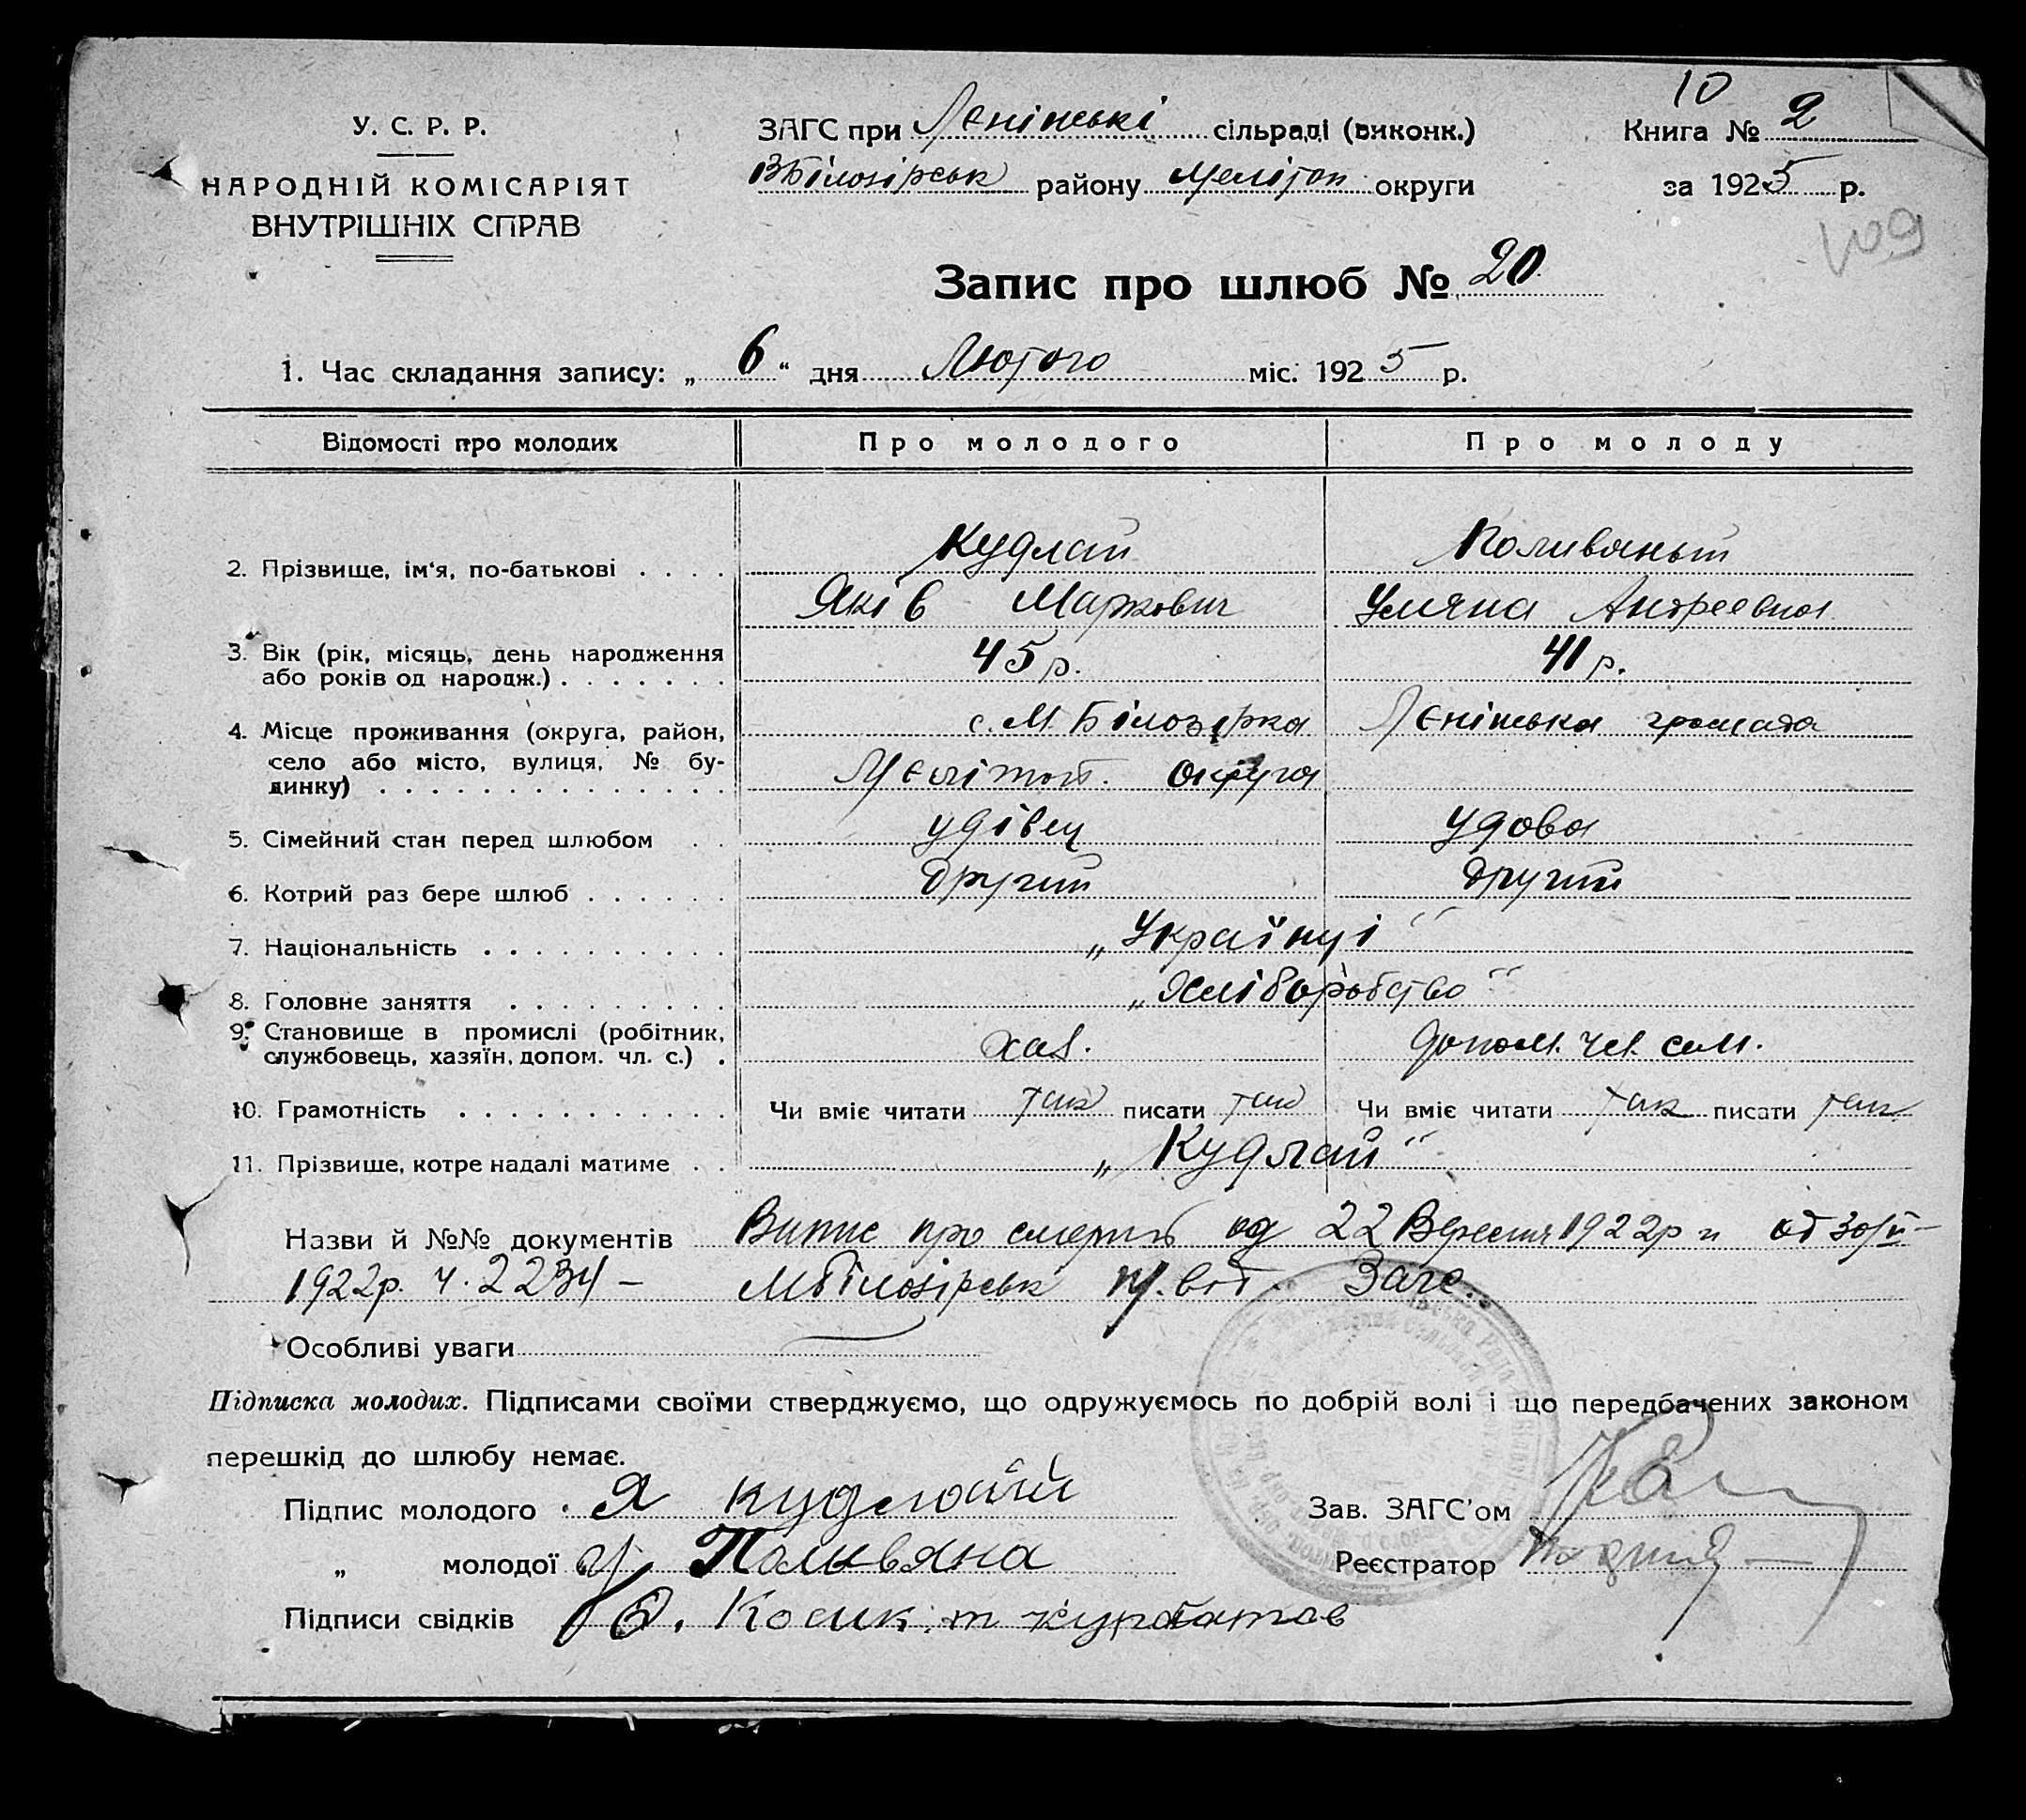 10
У. С. Р. Р.
НАРОДНІЙ КОМІСАРІЯТ
ВНУТРІШНІХ СПРАВ
ЗАГС при Лєнінські сільраді (виконк.)
ВБілозірськ району Мелітоп округи
Книга № 2
за 1925 р.
109
Запис про шлюб № 20
1. Час складання запису: „ 6 “ дня Лютого міс. 1925 р.
Відомості про молодих Про молодого Про молоду
2. Прізвище, ім‘я, по-батькові . . . . Кудлай
Яків Маркович Уляна Андреевна
3. Вік (рік, місяць, день народження
або років од народж.) . . . . . . . 45 р. 41 р.
4. Місце проживання (округа, район, с. М Білозірка Лєнінська громада
село або місто, вулиця, № бу-
динку) . . . . . . . . . . . . . . Мєлітоп. округа
5. Сімейний стан перед шлюбом . . удівец удова
6. Котрий раз бере шлюб . . . . . . другий другий
7. Національність . . . . . . . . . . „Українці“
8. Головне заняття . . . . . . . . . „Хліборобство“
9. Становище в промислі (робітник,
службовець, хазяїн, допом. чл. с.) . хаз. допом. чл. сем.
10. Грамотність . . . . . . . . . . . Чи вміє читати так писати так Чи вміє читати так писати так
11. Прізвище, котре надалі матиме . . „Кудлай“
Назви й №№ документів Випис про смерть од 22 Вересня 1922р и от
1922р. ч. 2234 – МБілозірськ Загс.
Особливі уваги
Підписка молодих. Підписами своїми стверджуємо, що одружуємось по добрій волі і що передбачених законом
перешкід до шлюбу немає.
Підпис молодого Я кудлай
„ молодої Поливяна
Підписи свідків Косик
Зав. ЗАГС’ом
Реєстратор